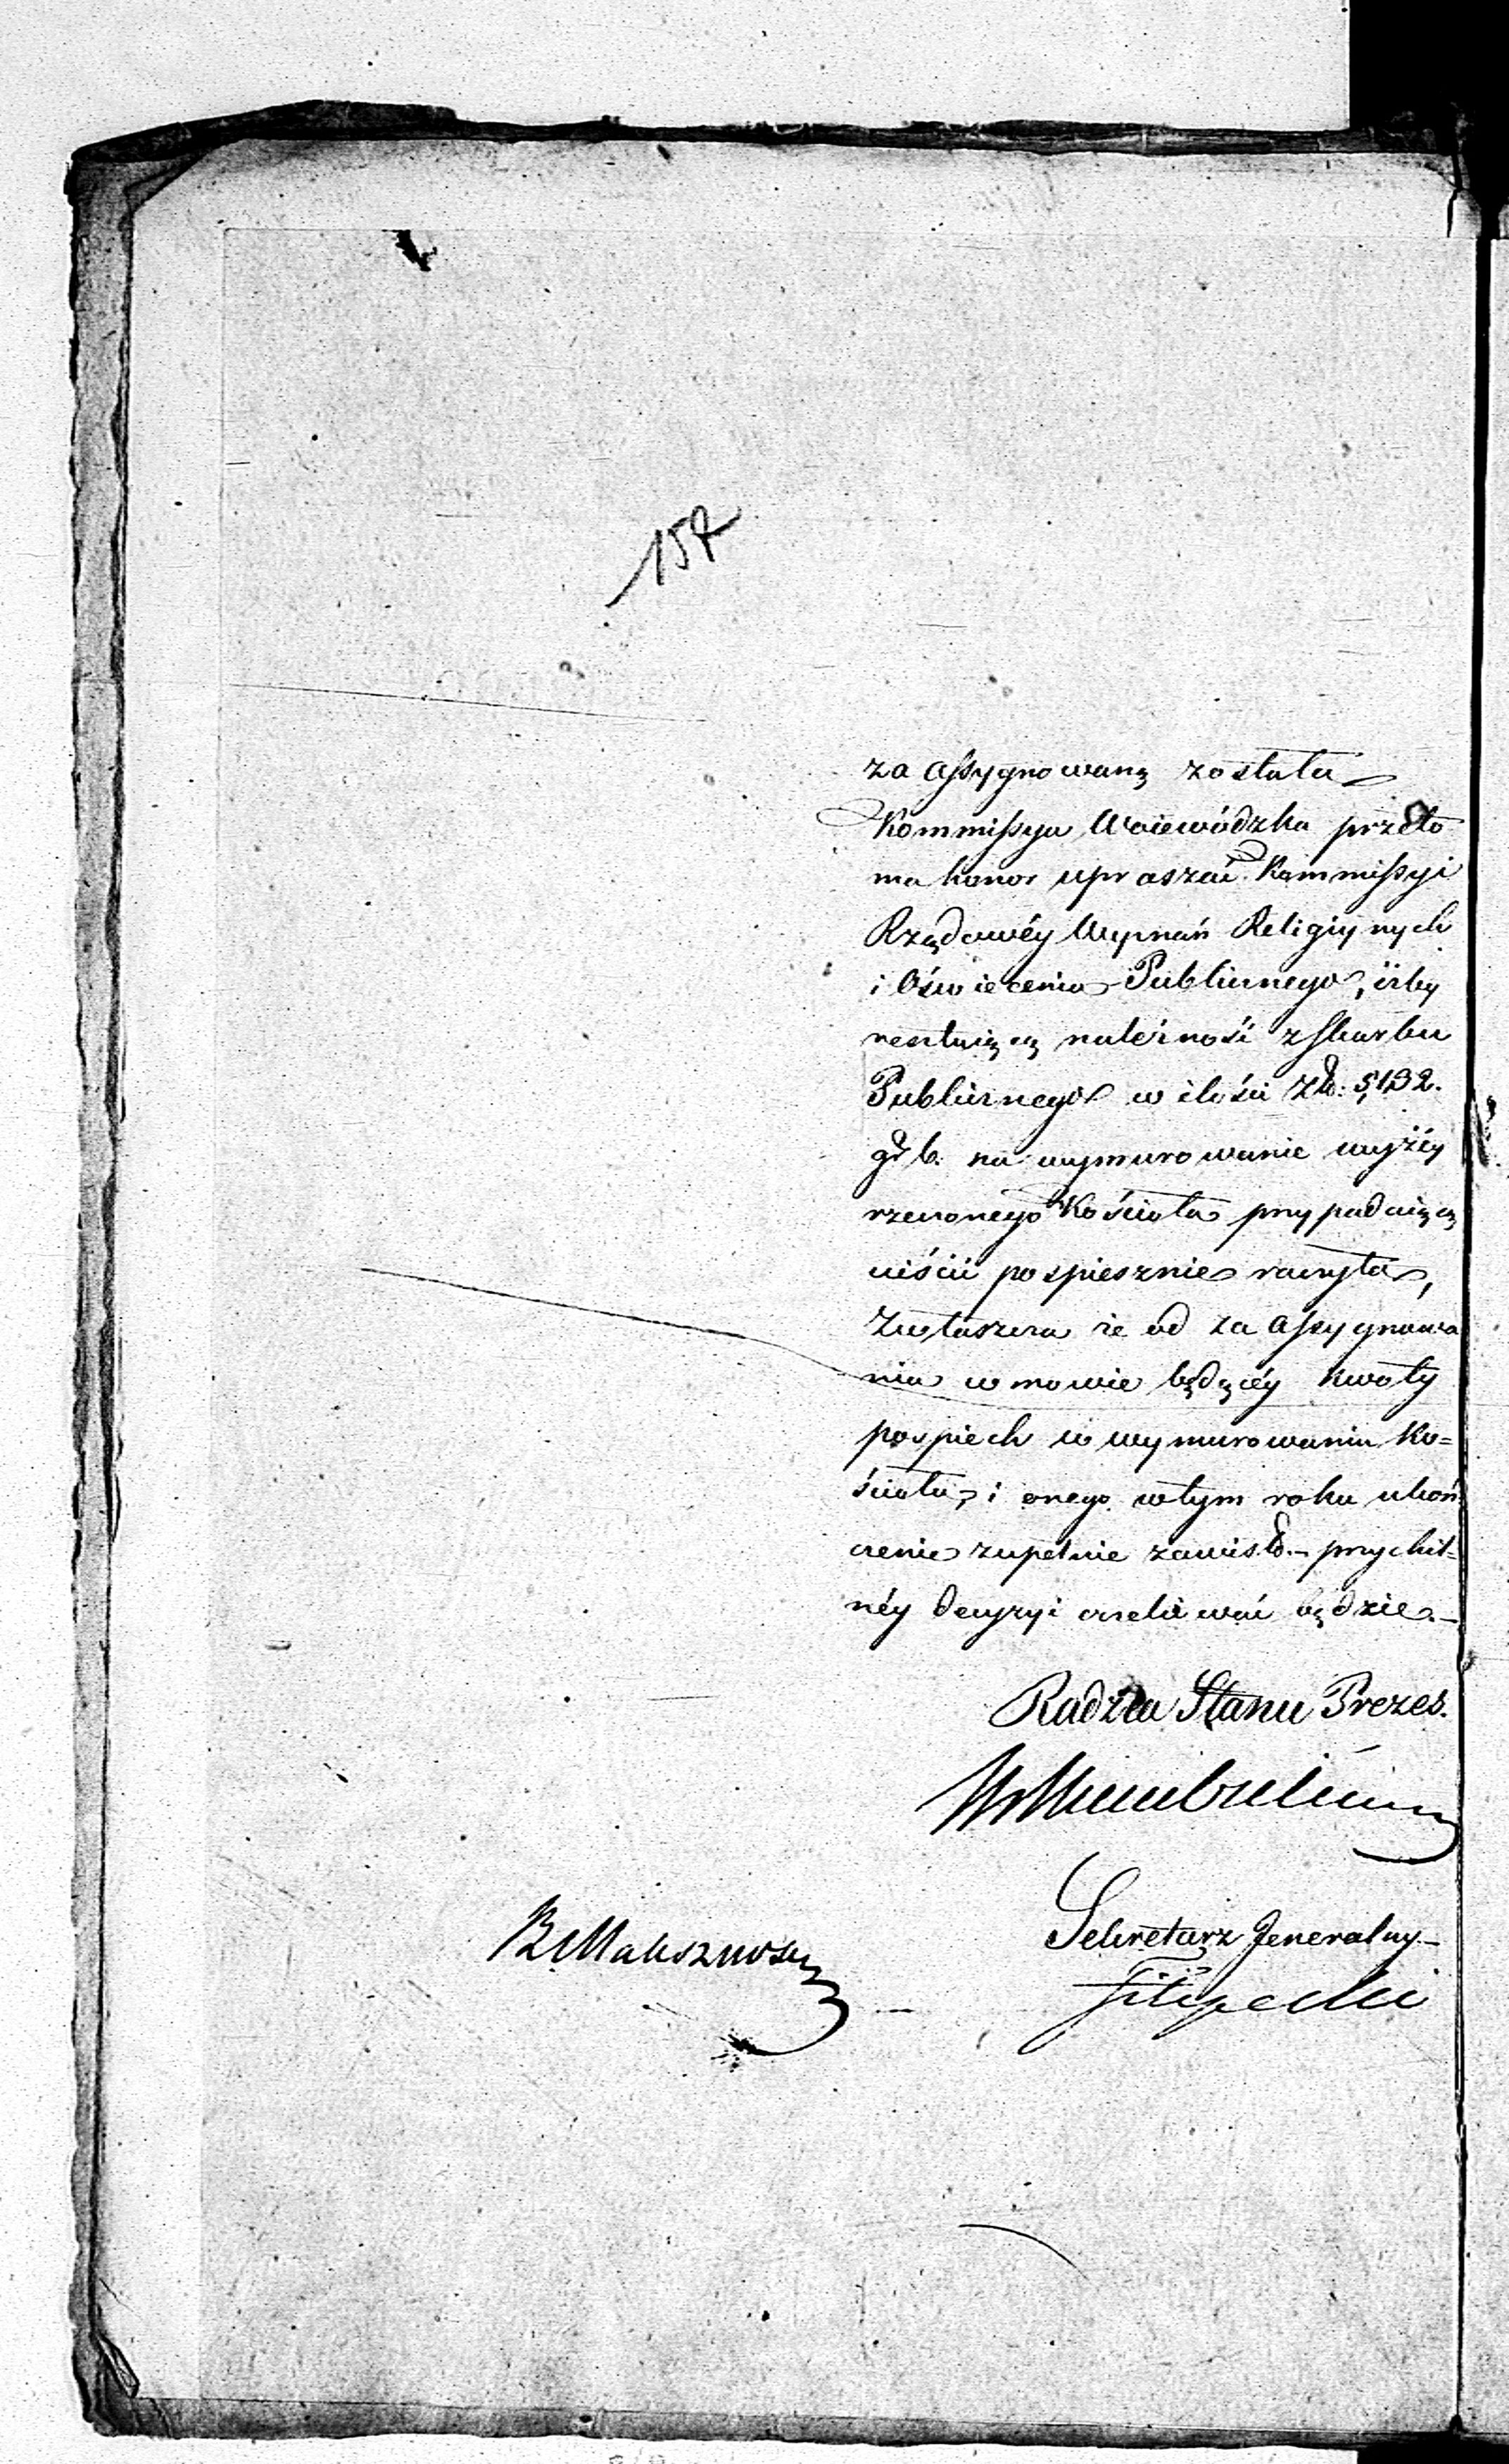 157
za assygnowaną została
Kommissya Woiewódzka przeto
ma honor upraszać Kommissyi
Rządowéy Wyznań Religiynych
i Oświecenia Publicznego, iżby
resztuiącą należność z Skarbu
Publicznego w ilości Zł: 5,132.
gr 6. na wymurowanie wyżéy
rzeczonego Kościoła przypadaiącą
uiścić pospiesznie raczyła,
Zwłaszcza że od za assygnowa
nia w mowie będącéy kwoty
pospiech w wymurowaniu Ko=
ścioła, i onego w tym roku ukoń
czenie zupełnie zawisło.– przychil=
néy decyzyi oczekiwać będzie.–
Radzca Stanu Prezes.
Sekretarz Jeneralny–
Filipecki